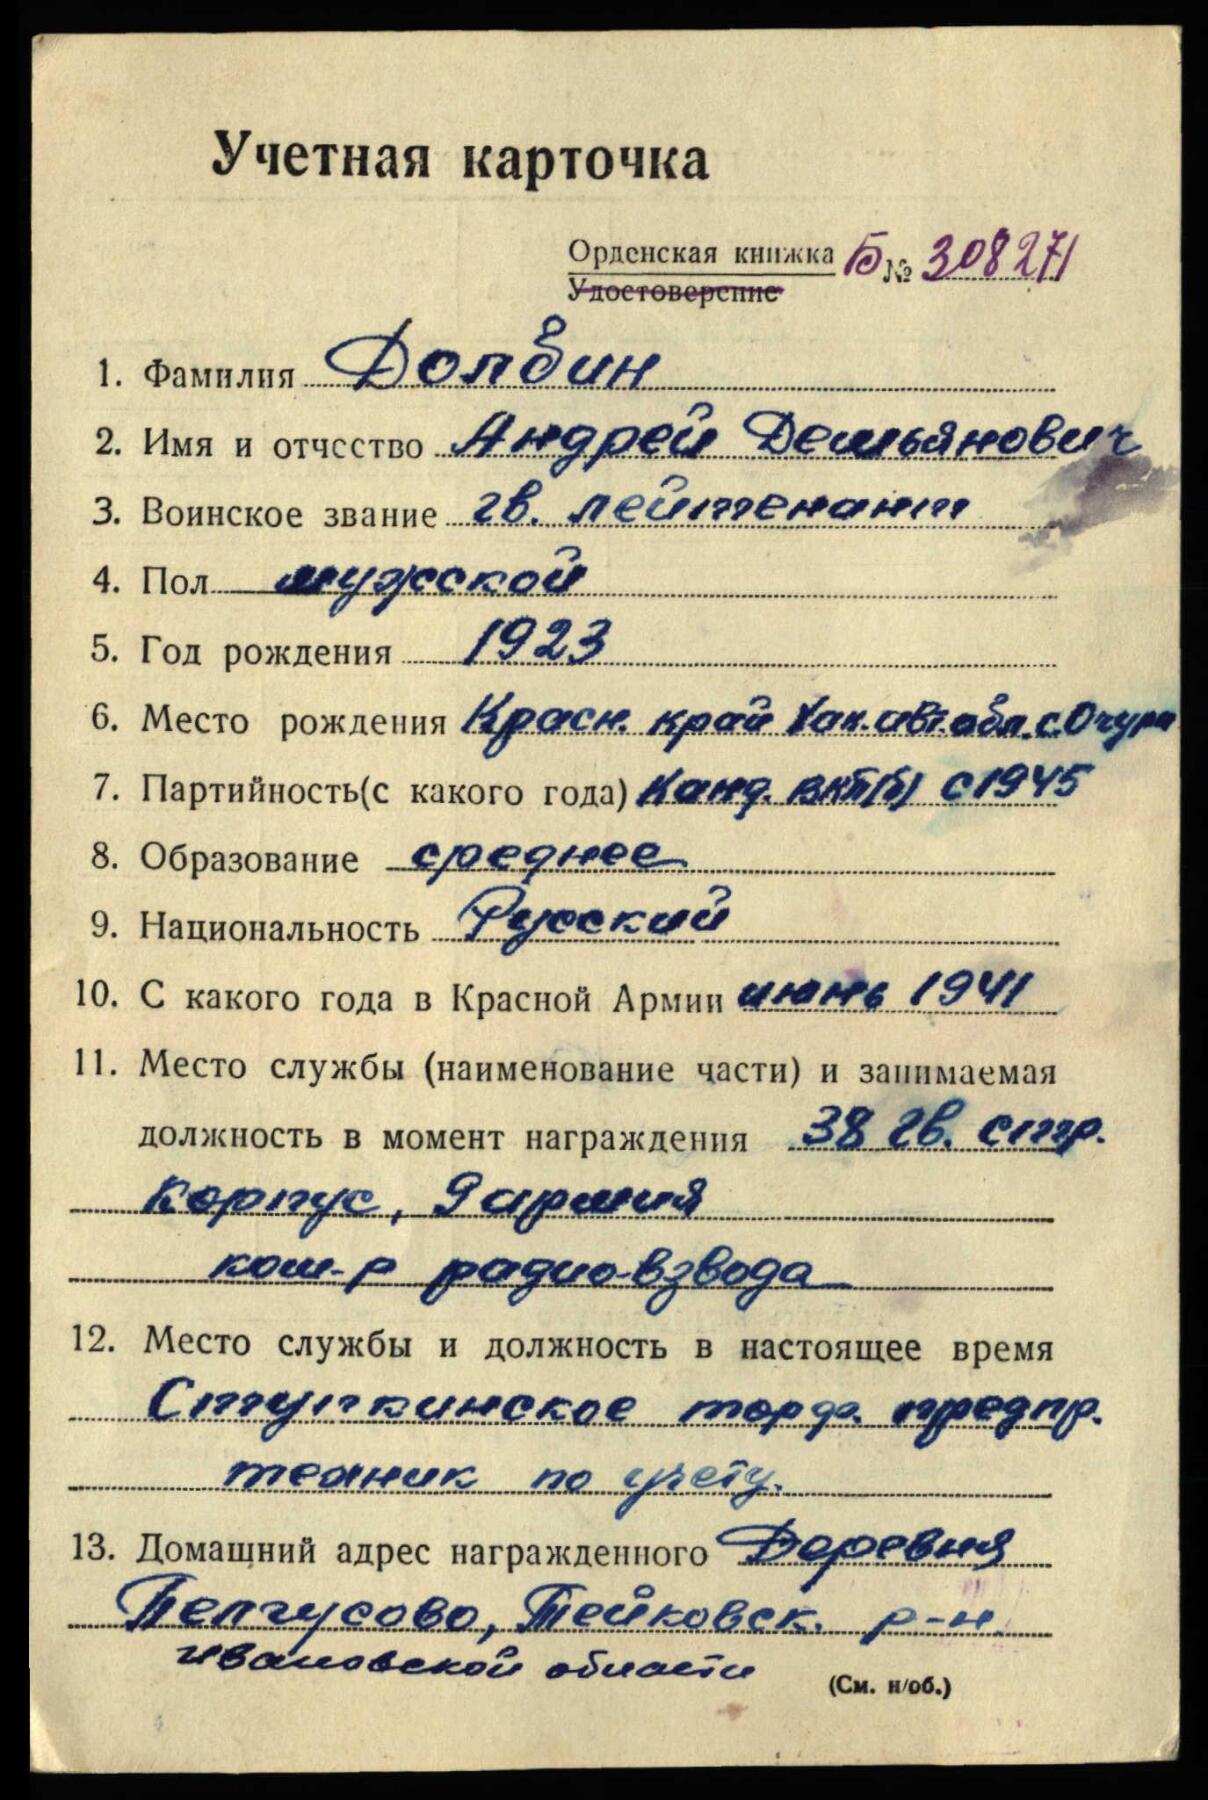 Учетная карточка
Орденская книжка Б № 308271
Удостоверение
1. Фамилия Долбин
2. Имя и отчество Андрей Демьянович
3. Воинское звание гв. лейтенант
4. Пол мужской
5. Год рождения 1923
6. Место рождения Красн. край Хак. авт. обл. с. Очура
7. Партийность (с какого года) Канд. ВКП(б) с 1945
8. Образование среднее
9. Национальность Русский
10. С какого года в Красной Армии июнь 1941
11. Место службы (наименование части) и занимаемая
должность в момент награждения 38 гв. стр.
корпус, 9 армия
ком-р радио-взвода
12. Место службы и должность в настоящее время
торф. предпр.
техник по учету.
13. Домашний адрес награжденного Деревня
Пелгусово, Тейковск. р-н.
Ивановской области
(См. н/об.)